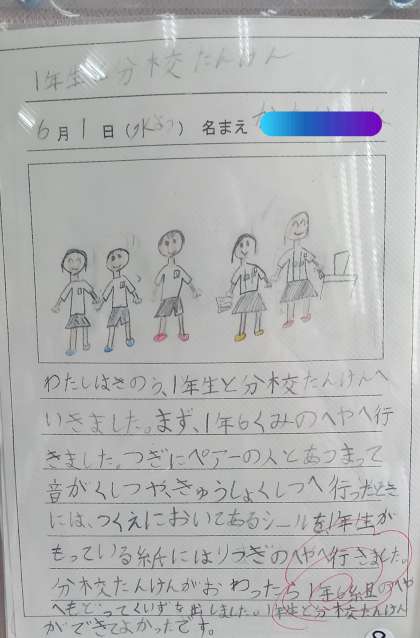 1年生と分校たんけん
6月1日(水よう) 名まえ
わたしはきのう、1年生と分校たんけんへ
いきました。まず、1年6くみのへやへ行
きました。つぎにペアーの人とあつまって
音がくしつや、きゅうしょくしつへ行ったとき
には、つくえにおいてあるシールを1年生が
もっている紙にはりつぎのへやへ行きました。
分校たんけんがおわったら1年6組のへや
へもどってくいずを出しました。1年生と分校たんけん
ができてよかったです。